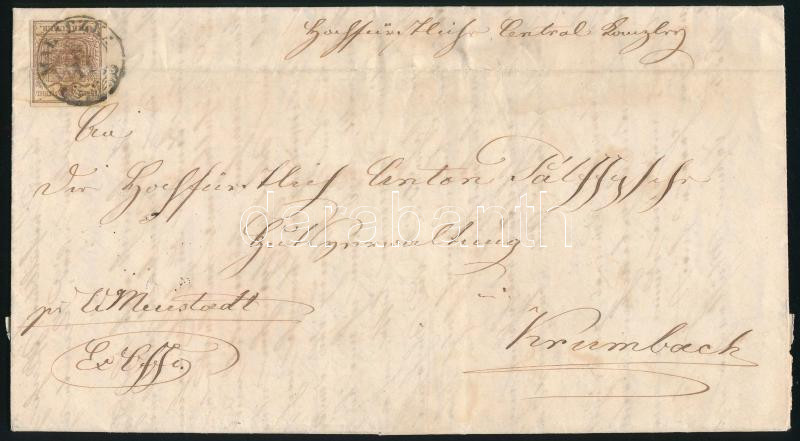 Hochfürstliche Central Kanzley
An
Die Hochfürstlich Anton Pálffysche
Gutsverwaltung
darabanth
pr W Neustadt
Ex Offo.
Krumbach